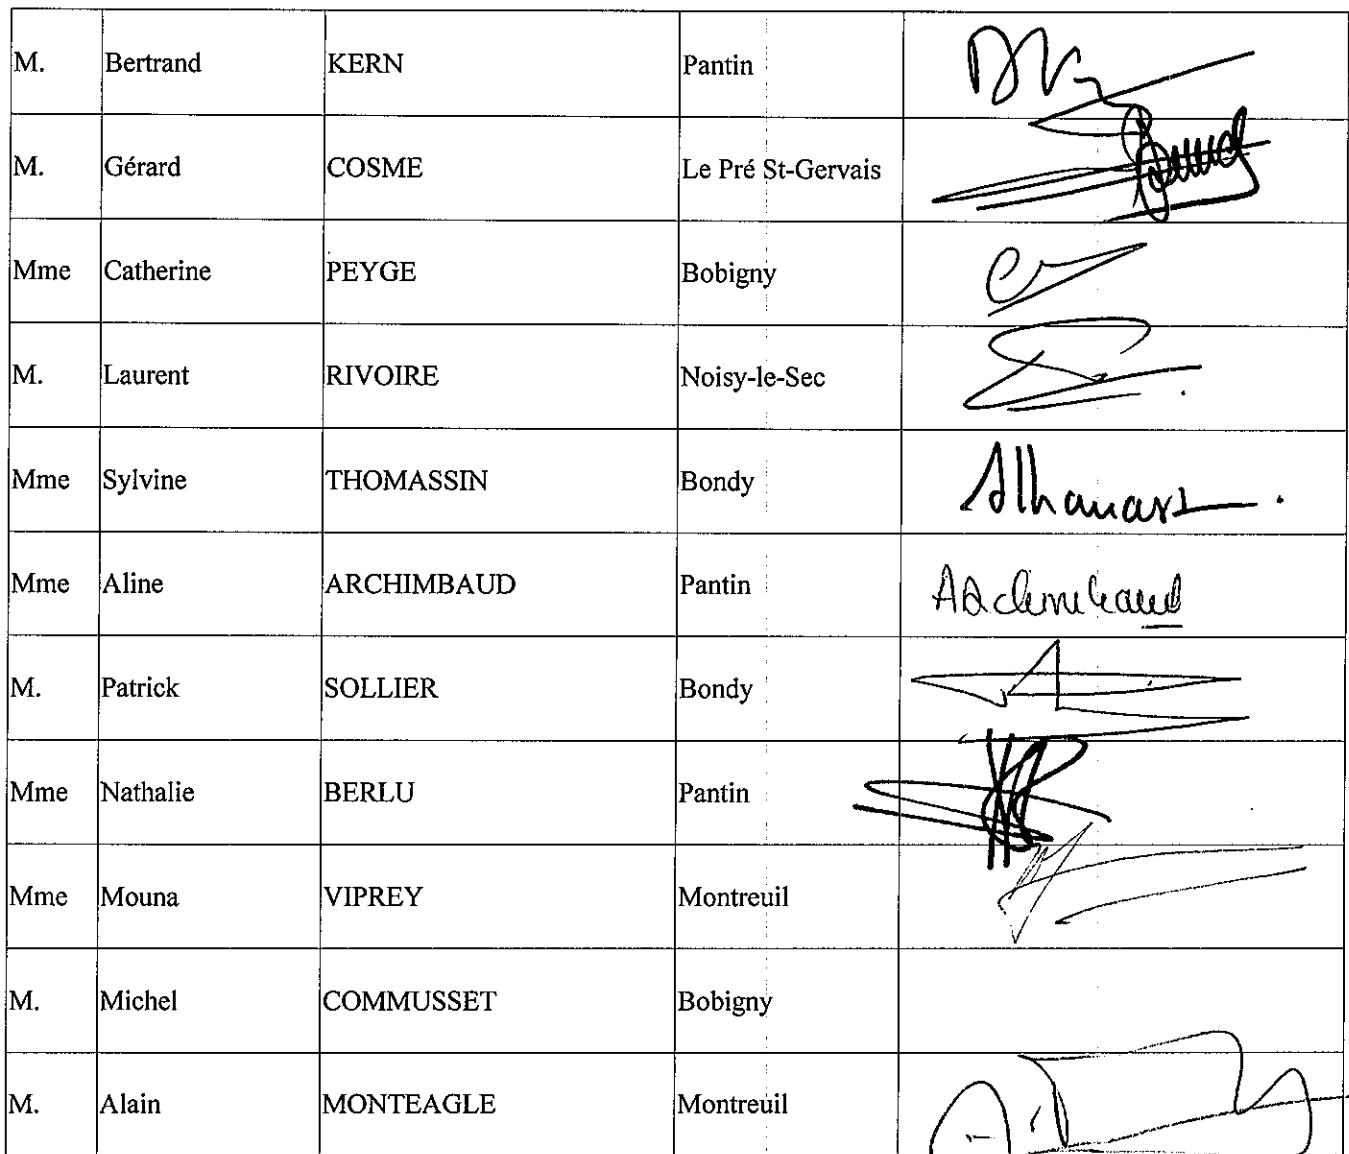 M. Bertrand KERN Pantin
M. Gérard COSME Le Pré St-Gervais
Mme Catherine PEYGE Bobigny
M. Laurent RIVOIRE Noisy-le-Sec
Mme Sylvine THOMASSIN Bondy
Mme Aline ARCHIMBAUD Pantin
M. Patrick SOLLIER Bondy
Mme Nathalie BERLU Pantin
Mme Mouna VIPREY Montreuil
M. Michel COMMUSSET Bobigny
M. Alain MONTEAGLE Montreuil